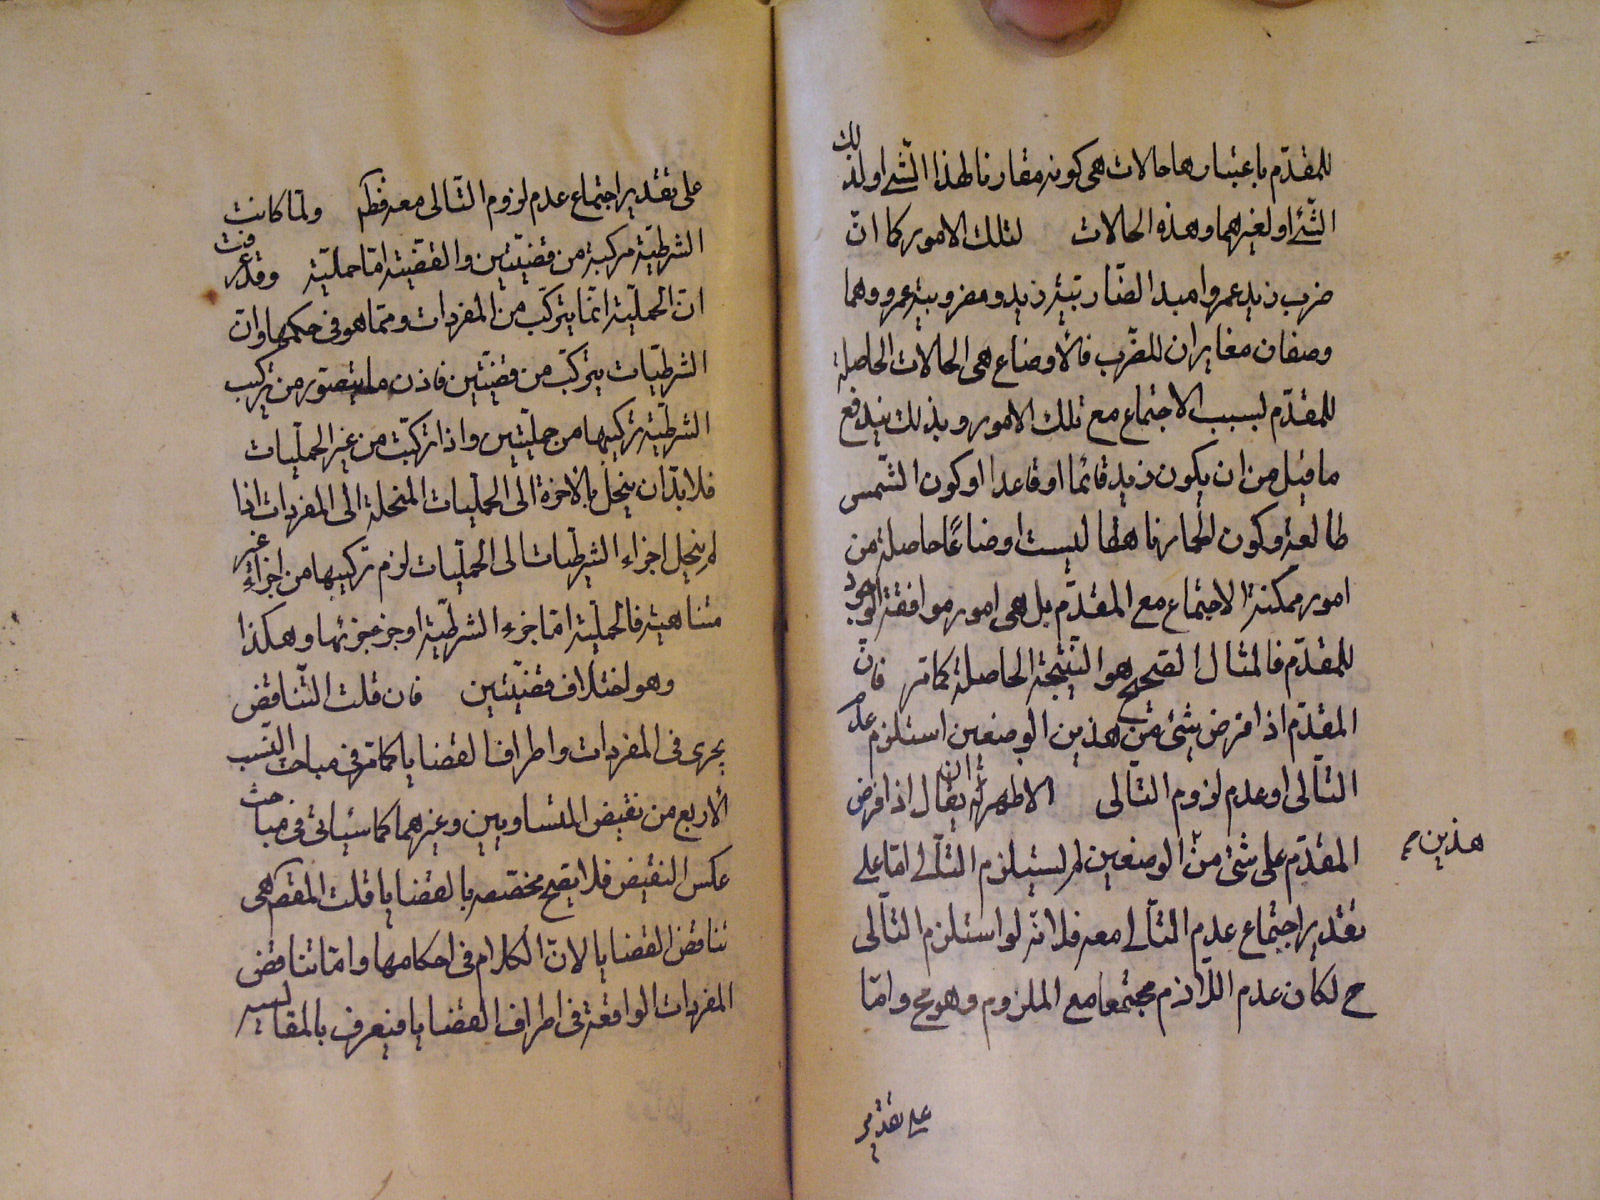 للمقدّم باعتبارها حالات هى كونه مقارنا لهذا الشئ او لذلك
الشّئ او لغيرهما وهذه الحالات لتلك الامور كما انّ
ضرب زيد عمروا مبدا لضّاربيّة زيد ومضروبية عمرو وهما
وصفان مغايران للضّرب فالأوضاع هى الحالات الحاصلة
للمقدّم بسبب الاجتماع مع تلك الامور وبذلك يندفع
ما قيل من ان يكون زيد قائما او قاعدا او كون الشّمس
طالعة وكون الحمار ناهقا ليست اوضاعًا حاصلة من
امور ممكنة الاجتماع مع المقدّم بل هى امور موافقة الوجود
للمقدّم فالمثال الصحيح هو النّتيجة الحاصلة كما مرّ فانّ
المقدّم اذا فرض بشئ من هذين الوضعين استلزم عدم
التّالى او عدم لزوم التّالى الاظهر ان يقال اذا فرض
المقدّم على شئ من الوضعين لم يستلزم التّالى امّا على
هذين
تقدير اجتماع عدم التّالى معه فلانّه لو استلزم التالى
ح لكان عدم اللّازم مجتمعا مع الملزوم وهو مح وامّا
على تقدير
على تقدير اجتماع عدم لزوم التّالى معه فظم ولمّا كانت
الشرطيّة مركبة من قضيّتين والقضيّة امّا حمليّة وقد عرفت
انّ الحمليّة انّما يتركّب من المفردات وممّا هو فى حكمها وانّ
الشرطيّات يتركّب من قضيّتين فاذن ما يتصوّر من تركيب
الشرطيّة تركيبها من حمليّتين واذا تركّبت من غير الحمليّات
فلا بدّ ان ينحلّ بالاخرة الى الحمليات المنحلة الى المفردات اذا
لم ينحل اجزاء الشرطيات الى الحمليّات لزم تركيبها من اجزاء غير
متناهية فالحمليّة امّا جزء الشرطيّة او جزء جزئها وهكذا
وهو اختلاف قضيّتين فان قلت التّناقض
يجرى فى المفردات واطراف القضايا كما مرّ فى مباحث النّسب
الأربع من نقيض المتساويين وغيرهما كما سيأتى فى مباحث
عكس النقيض فلا يصح تخصّصه بالقضايا قلت المقصم هى
تناقض القضايا لانّ الكلام فى احكامها وامّا تناقض
المفردات الواقعة فى اطراف القضايا فيعرف بالمقايسة